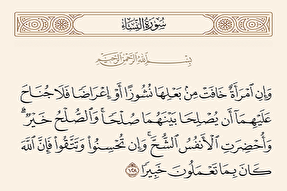 سُورَةُ النِّسَاءِ
بِسْمِ ٱللَّهِ ٱلرَّحْمَٰنِ ٱلرَّحِيمِ
وَإِنِ ٱمْرَأَةٌ خَافَتْ مِنۢ بَعْلِهَا نُشُوزًا أَوْ إِعْرَاضًا فَلَا جُنَاحَ
عَلَيْهِمَآ أَن يُصْلِحَا بَيْنَهُمَا صُلْحًا ۚ وَٱلصُّلْحُ خَيْرٌ ۗ
وَأُحْضِرَتِ ٱلْأَنفُسُ ٱلشُّحَّ ۚ وَإِن تُحْسِنُوا۟ وَتَتَّقُوا۟ فَإِنَّ ٱللَّهَ
كَانَ بِمَا تَعْمَلُونَ خَبِيرًا ١٢٨